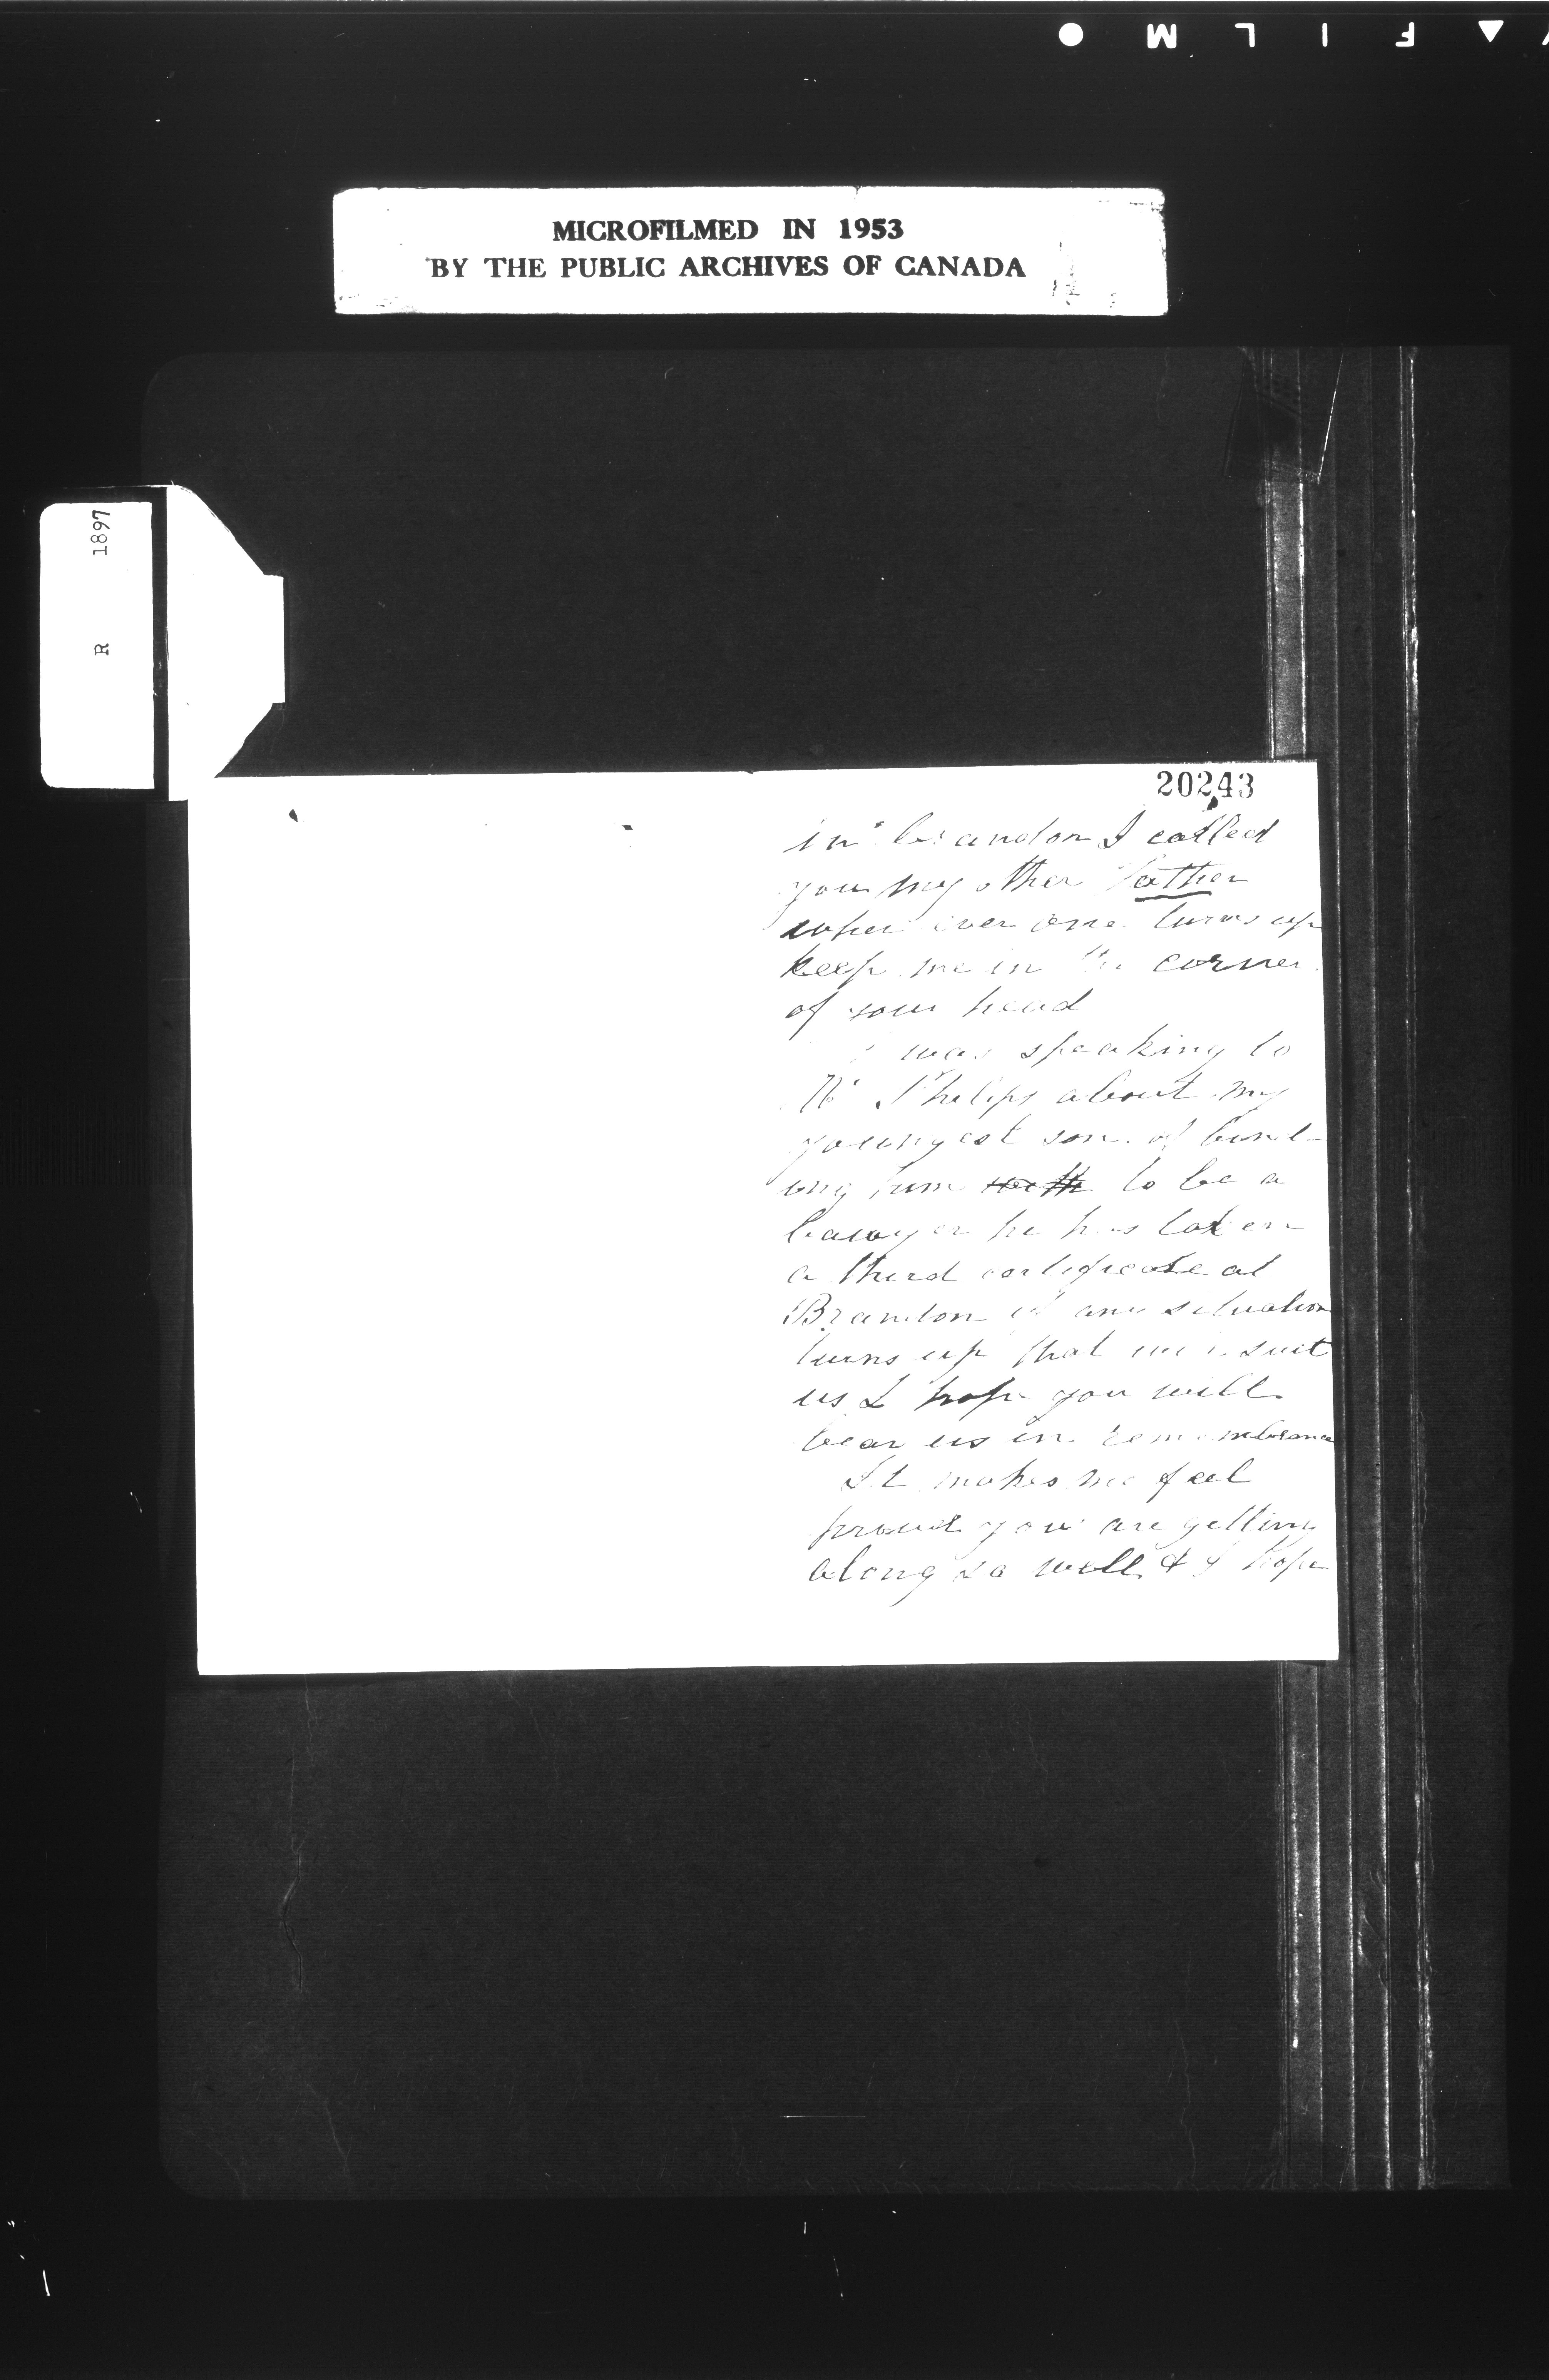 FILM
MICROFILMED IN 1953
BY THE PUBLIC ARCHIVES OF CANADA
R 1897
20243
in brandon I called
you my other Father
when ever one turns up
keep me in the corner
of your head
I was speaking to
Mr Philips about my
youngest son of bind-
ing him with to be a
lawyer he has taken
a third certificate at
Brandon if any situation
turns up that will suit
us I hope you will
bear us in remembrance
It makes me feel
proud you are getting
along so well & I hope